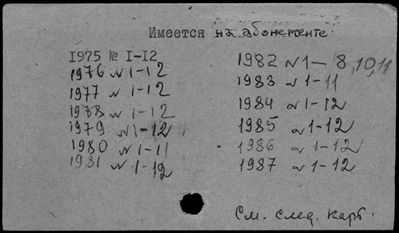 Имеется на абонементе
1975 № I-I2
1976 № 1-12
1977 № 1-12
1978 № 1-12
1979 № 1-12
1980 № 1-11
1981 № 1-12
1982 № 1— 8,10,11
1983 № 1-11
1984 № 1-12
1985 № 1-12
1986 № 1-12
1987 № 1-12
См. след. карт.